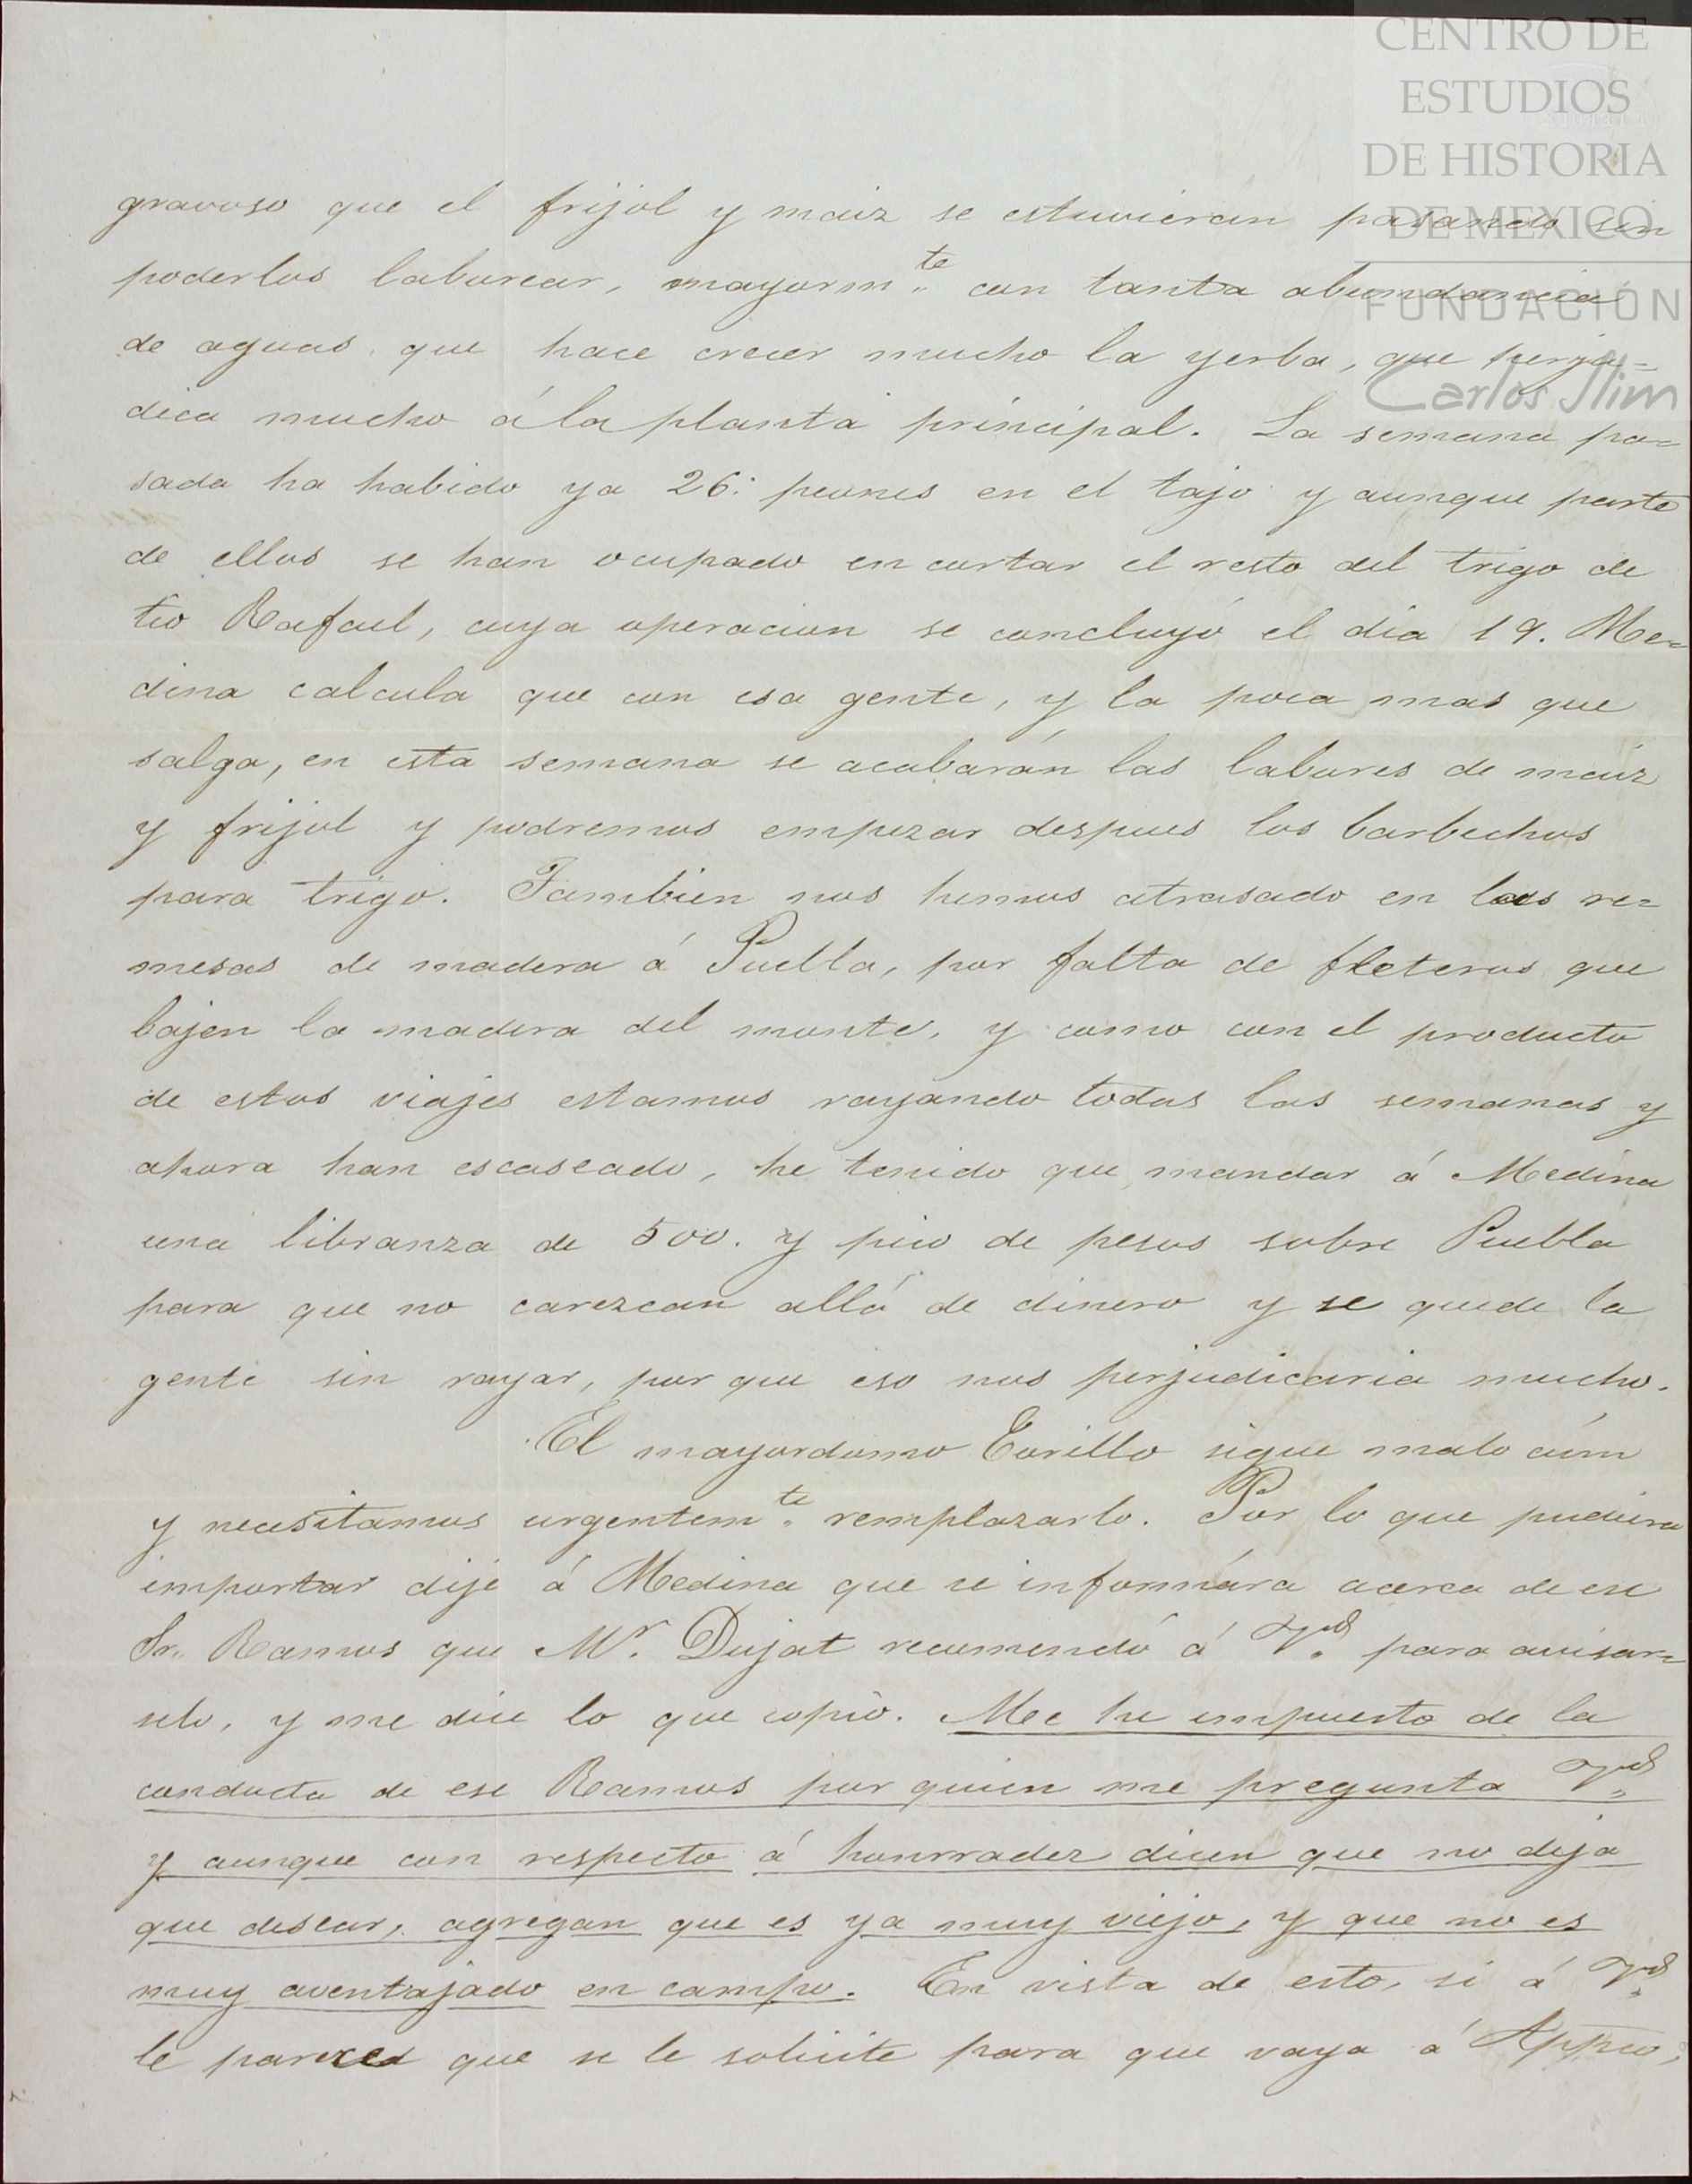 CENTRO DE
ESTUDIOS
DE HISTORIA
DE MEXICO
FUNDACIÓN
Carlos Slim
gravoso que el frijol y maiz se estuvieran pasando sin
poderlos laborear, mayorm.te con tanta abundancia
de aguas que hace crecer mucho la yerba, que perju=
dica mucho á la planta principal. La semana pa=
sada ha habido ya 26. peones en el tajo y aunque parte
de ellos se han ocupado en cortar el resto del trigo de
tio Rafael, cuya operacion se concluyó el dia 19. Me=
dina calcula que con esa gente, y la poca mas que
salga, en esta semana se acabarán las labores de maiz
y frijol y podremos empezar despues los barbechos
para trigo. Tambien nos hemos atrasado en las re=
mesas de madera á Puebla, por falta de fleteros que
bajen la madera del monte, y como con el producto
de estos viajes estamos rayando todas las semanas y
ahora han escaseado, he tenido que mandar á Medina
una libranza de 500. y pico de pesos sobre Puebla
para que no carezcan allá de dinero y se quede la
gente sin rayar, por que eso nos perjudicaria mucho.
El mayordomo sigue malo aún
y necesitamos urgentem.te remplazarlo. Por lo que pudiera
importar dije á Medina que se informára acerca de ese
Sr. Ramos que Mr. Dujat recomendó á Vd. para avisar=
selo, y me dice lo que copio. Me he impuesto de la
conducta de ese Ramos por quien me pregunta Vd.
y aunque con respecto á honrradez dicen que no deja
que desear, agregan que es ya muy viejo, y que no es
muy aventajado en campo. En vista de esto, si á Vd.
le parece que se le solicite para que vaya á Appco,